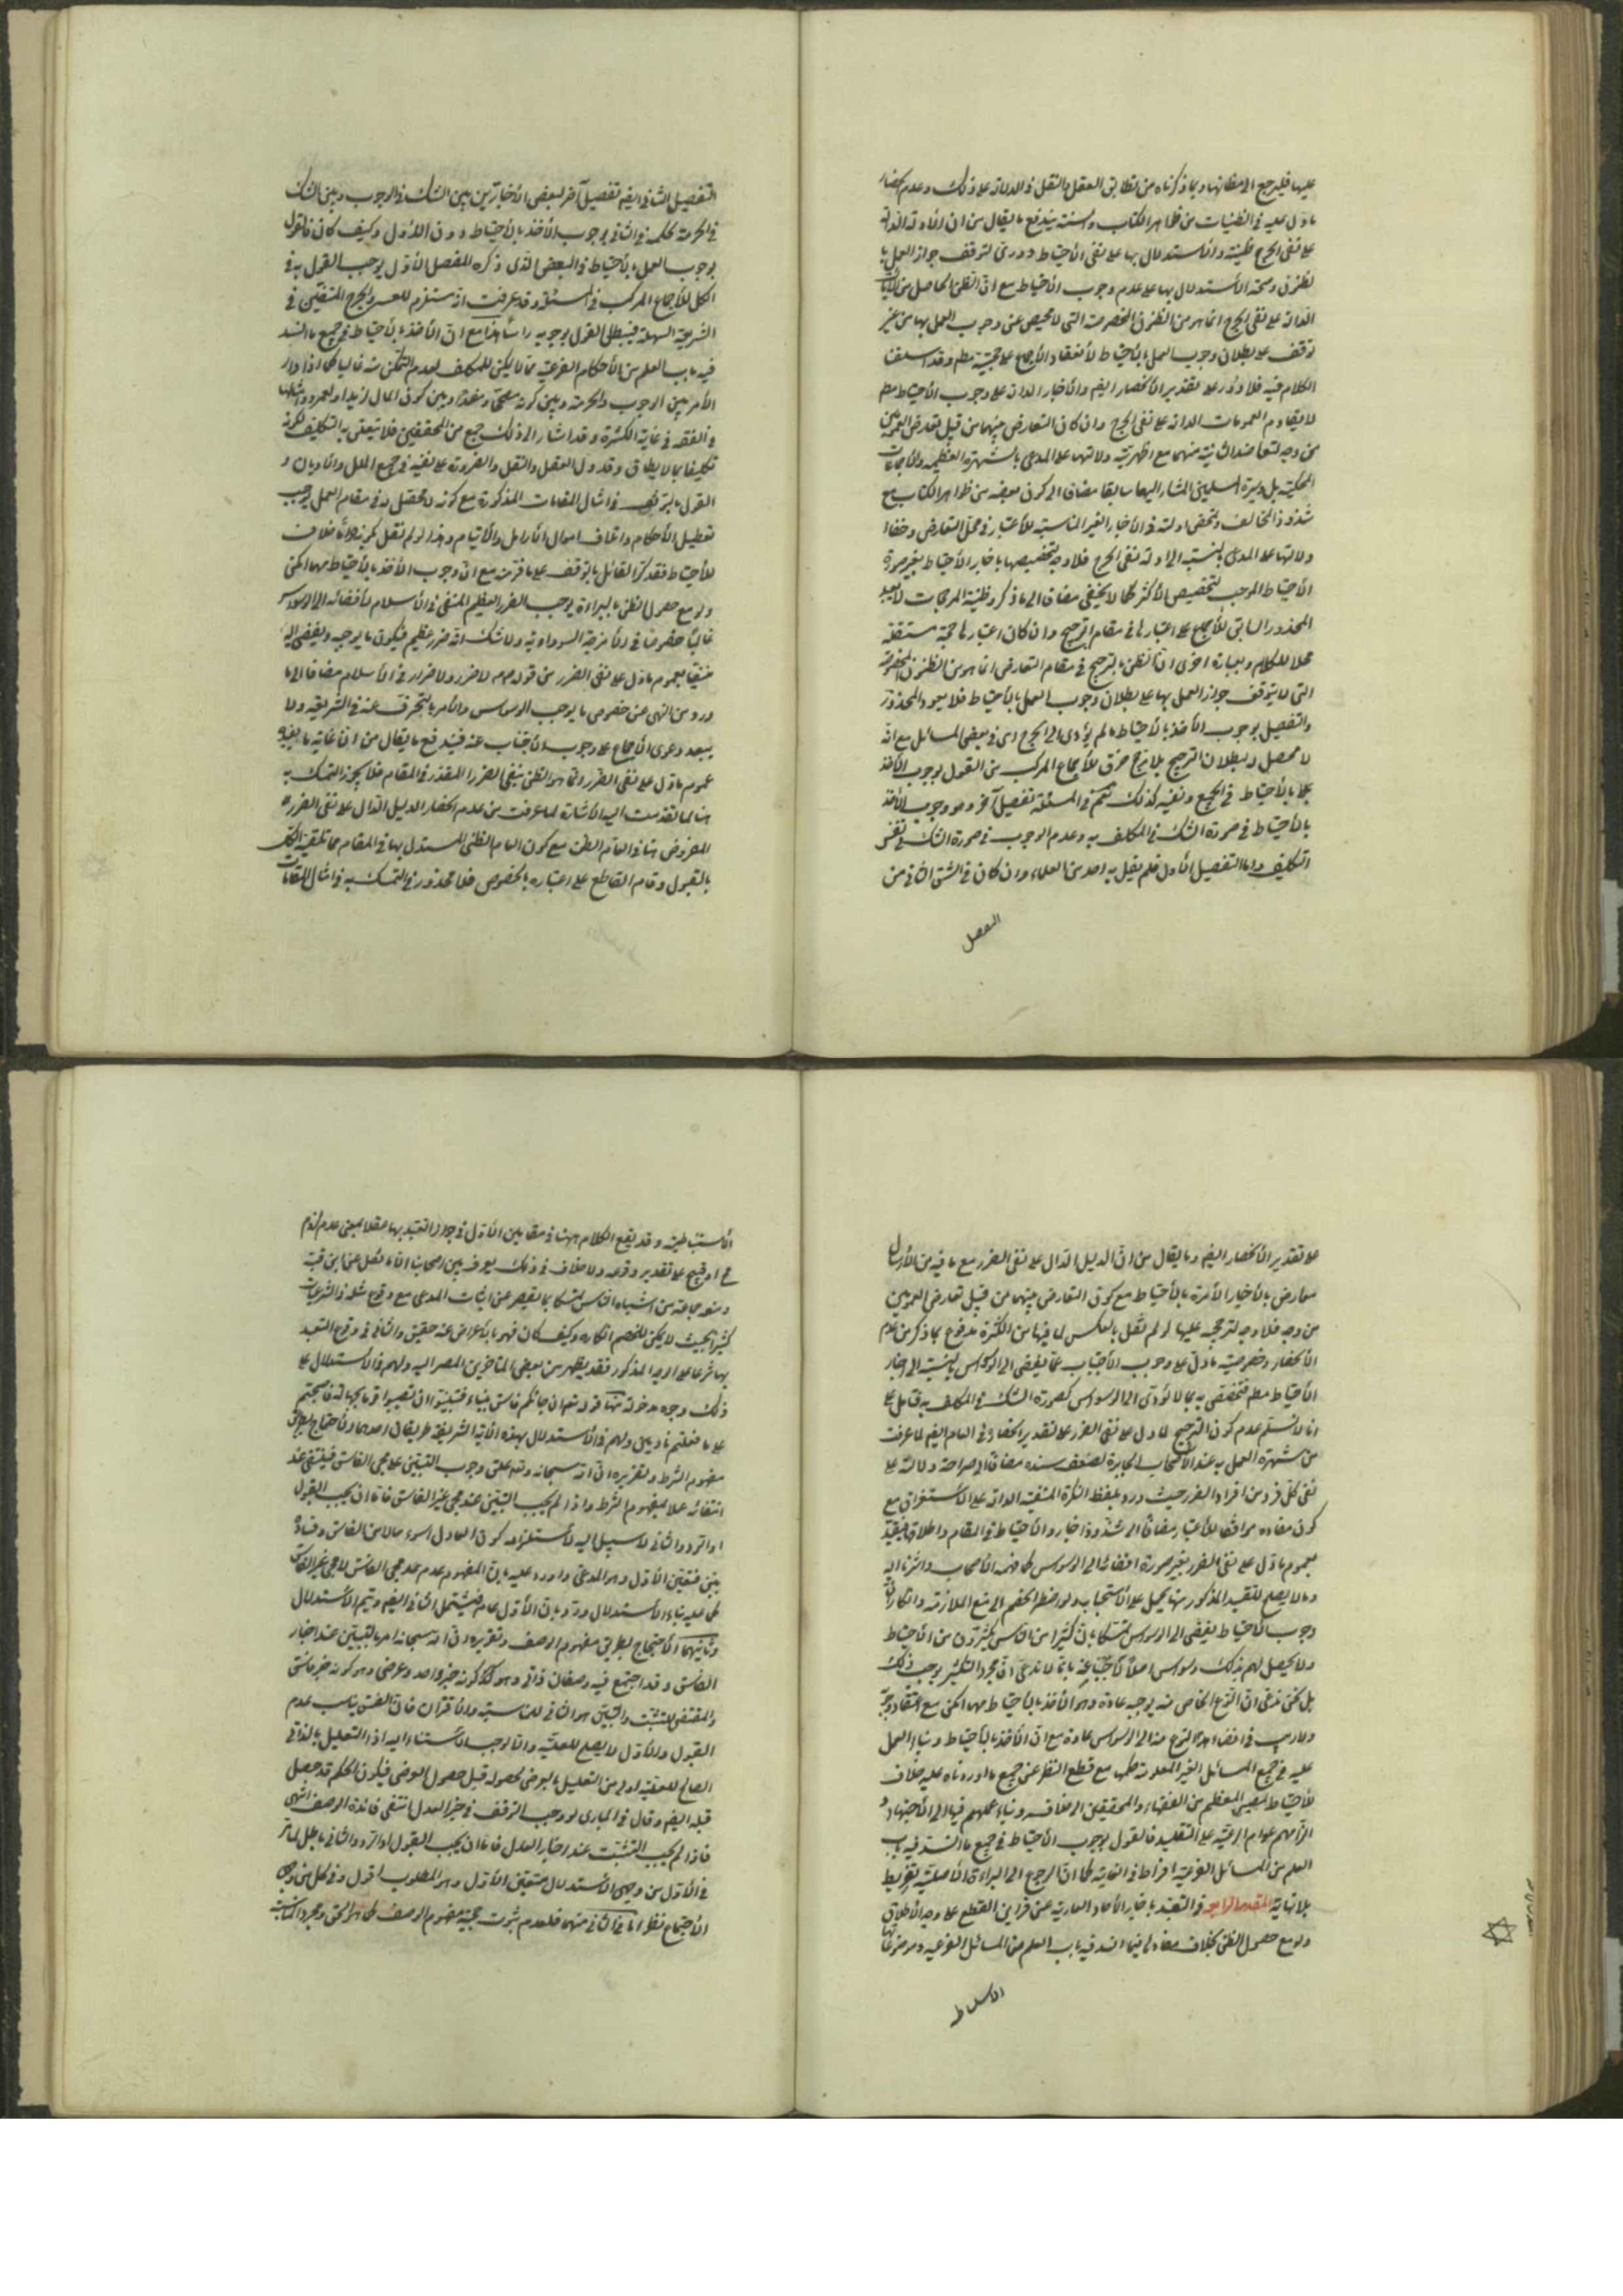 عليها فليرجع الى مظانها وبما ذكرناه من تطابق العقل والنقل في الدلالة على ذلك وعدم انحصار
ما دل عليه في الظنيات من ظاهر الكتاب والسنة يندفع ما يقال من ان الادلة الدالة
على نفى الحرج ظنية والاستدلال بها على نفى الاحتياط دورى لتوقف جواز العمل با
لظنون وصحة الاستدلال بها على عدم وجوب الاحتياط مع ان الظن الحاصل من الايات
الدالة على نفى الحرج انما هو من الظنون المخصوصة التى لا محيص عن وجوب العمل بها من غير
توقف على بطلان وجوب العمل بالاحتياط لانعقاد الاجماع على حجيته مطم وقد اسلفنا
الكلام فيه فلا دور على تقدير الانحصار ايضم والاخبار الدالة على وجوب الاحتياط مطم
لا يقاوم العمومات الدالة على نفى الحرج وان كان التعارض بينهما من قبيل تعارض العمومين
من وجه لتعاضد الثانية منهما مع اظهرية دلالتها على المدعى بالشهرة العظيمة والاجماعات
المحكية بل وسيرة المسلمين المشار اليها سابقا مضافا الى كون بعضه من ظواهر الكتاب مع
شذوذ المخالف وتمحض ادلته في الاخبار الغير المناسبة للاعتبار في محل التعارض وخفاء
دلالتها على المدعى بالنسبة الى ادلة نفى الحرج فلا وجه لتخصيصها باخبار الاحتياط بغير صورة
الاحتياط الموجب لتخصيص الاكثر كما لا يخفى مضافا الى ما ذكر وظنية المرجحات لا يعيد
المحذور السابق للاجماع على اعتبارها في مقام الترجيح وان كان اعتبارها حجة مستقلة
محلا للكلام وبعبارة اخرى ان الظن بالترجيح في مقام التعارض انما هو من الظنون المخصوصة
التى لا يتوقف جواز العمل بها على بطلان وجوب العمل بالاحتياط فلا يعود المحذور
والتفصيل بوجوب الاخذ بالاحتياط ما لم يؤدى الى الحرج اى في بعض المسائل مع انه
لا محصل له لبطلان الترجيح بلا مرجح خرق للاجماع المركب من القول بوجوب الاخذ
بالاحتياط في الجميع ونفيه كذلك نعم في المسئلة تفصيل آخر وهو وجوب الاخذ
بالاحتياط في صورة الشك في المكلف به وعدم الوجوب في صورة الشك في نفس
التكليف واما التفصيل الاول فلم يقل به احد من العلماء وان كان في الشق الثانى من
التفصيل
التفصيل الثانى ايضم تفصيل آخر لبعض الاخباريين بين الشك في الوجوب وبين الشك
في الحرمة بحكمه في الثانى بوجوب الاخذ بالاحتياط دون الاول وكيف كان فالقول
بوجوب العمل بالاحتياط في البعض الذى ذكره المفصل الاول يوجب القول به في
الكل للاجماع المركب في المسئلة وقد عرفت انه مستلزم للعسر والحرج المنفيين في
الشريعة السهلة فيبطل القول بوجوبه راسا هذا مع ان الاخذ بالاحتياط في جميع ما انسد
فيه باب العلم من الاحكام الفرعية مما لا يمكن للمكلف لعدم التمكن منه غالبا كما اذا دار
الامر بين الوجوب والحرمة وبين كونه مصححا ومفسدا وبين كون المال لزيد او لعمرو وامثالها
في الفقه في غاية الكثرة وقد اشار الى ذلك جمع من المحققين فلا يتعلق به التكليف لكونه
تكليفا بما لا يطاق وقد دل العقل والنقل والضرورة على نفيه في جميع الملل والاديان و
القول بالتوقف في امثال المقامات المذكورة مع كونه لا محصل له في مقام العمل يوجب
تعطيل الاحكام واتلاف اموال الارامل والايتام وهذا لو لم نقل بكونه خلاف
الاحتياط فقد كر القائل بالتوقف على ما فر منه مع ان وجوب الاخذ بالاحتياط مهما امكن
ولو مع حصول الظن بالبرائة يوجب الضرر العظيم المنفى في الاسلام لافضائه الى الوسواس
غالبا خصوصا في الامزجة السوداوية ولا شك انه ضرر عظيم فيكون ما يوجبه ويفضى اليه
منفيا بعموم ما دل على نفى الضرر من قوله صم لا ضرر ولا ضرار في الاسلام مضافا الى ما
ورد من النهى عن خصوص ما يوجب الوسواس والامر بالتحرز عنه في الشريعة ولا
يبعد دعوى الاجماع على وجوب الاجتناب عنه فيندفع ما يقال من ان غاية ما يفيده
عموم ما دل على نفى الضرر انما هو الظن بنفى الضرر المقدر في المقام فلا يجوز التمسك به
هنا لما تقدمت اليه الاشارة لما عرفت من عدم انحصار الدليل الدال على نفى الضرر
المفروض هنا في العام الظنى مع كون العام الظنى المستدل بها في المقام مما تلقته الكل
بالقبول وقام القاطع على اعتباره بالخصوص فلا محذور في التمسك به في امثال المقامات
على تقدير الانحصار ايضم وما يقال من ان الدليل الدال على نفى الضرر مع ما فيه من الارسال
معارض بالاخبار الآمرة بالاحتياط مع كون التعارض بينهما من قبيل تعارض العمومين
من وجه فلا وجه لترجيحه عليها لو لم نقل بالعكس لما فيها من الكثرة مدفوع بما ذكر من عدم
الانحصار وخصوصية ما دل على وجوب الاجتناب عما يفضى الى الوسواس بالنسبة الى اخبار
الاحتياط مطم فتخصص به بما لا يؤدى الى الوسواس كصورة الشك في المكلف به قتامل على
انا لا نسلم عدم كون الترجيح لما دل على نفى الضرر على تقدير انحصاره في العام ايضم لما عرفت
من شهرة العمل به عند الاصحاب الجابرة لضعف سنده مضافا الى صراحة دلالته على
نفى كل فرد من افراد الضرر حيث ورد بلفظ النكرة المنفية الدالة على الاستغراق مع
كون مفاده موافقا للاعتبار مضافا الى شذوذ اخبار الاحتياط في المقام واطلاقها فيقيد
بعموم ما دل على نفى الضرر بغير صورة افضائه الى الوسواس كما فهمه الاصحاب واشرنا اليه
وما لا يصلح للتقييد المذكور منها يحمل على الاستحباب ولو اضطر الخصم الى منع الملازمة وانكار ان
وجوب الاحتياط يفضى الى الوسواس متمسكا بان كثيرا من الناس يكثرون من الاحتياط
ولا يحصل لهم بذلك وسواس اصلا لاجبته بانا لا ندعى ان مجرد التكثير يوجب ذلك
بل نحن ندعى ان النوع الخاص منه يوجبه عادة وهو الاخذ بالاحتياط مهما امكن مع اعتقاد وجوبه
ولا ريب في افضاء هذا النوع منه الى الوسواس عادة مع ان الاخذ بالاحتياط وبناء العمل
عليه في جميع المسائل الغير المعلومة حكمها مع قطع النظر عن جميع ما اوردناه عليه خلاف
الاحتياط لمصير المعظم من الفقهاء والمحققين الى خلافه وبناء عملهم فيها الى الاجتهاد و
الزامهم عوام الرعية على التقليد فالقول بوجوب الاحتياط في جميع ما انسد فيه باب
العلم من المسائل الفرعية افراط في الغاية كما ان الرجوع الى البرائة الاصلية تفريط
بلا نهاية المقصد الرابع في التعبد باخبار الآحاد العارية عن قراين القطع على وجه الاطلاق
ولو مع حصول الظن بخلاف مفادها فيما انسد فيه باب العلم من المسائل الفرعية وموضوعاتها
الاستنباطية
الاستنباطية وقد يقع الكلام ههنا في مقامين الاول في جواز التعبد بها عقلا بمعنى عدم لزوم
مح او قبيح على تقدير وقوعه ولا خلاف في ذلك يعرف بين اصحابنا الا ما نقل عن ابن قبة
ومنعه جماعة من اشباه الناس متمسكا بما يقصر عن اثبات المدعى مع وقوع مثله في الشرعيات
كثيرا بحيث لا يمكن للخصم انكاره وكيف كان فهو بالاعراض عنه حقيق والثانى في وقوع التعبد
بها شرعا على الوجه المذكور فقد يظهر من بعض المتاخرين المصير اليه ولهم في الاستدلال على
ذلك وجوه مدخولة منها قوله تعم ان جائكم فاسق بنباء فتبينوا ان تصيبوا قوما بجهالة فتصبحوا
على ما فعلتم نادمين ولهم في الاستدلال بهذه الآية الشريفة طريقان احدهما الاحتجاج بطريق
مفهوم الشرط وتقريره ان الله سبحانه وتعم علق وجوب التبين على مجئ الفاسق فينتفى عند
انتفائه عملا بمفهوم الشرط واذا لم يجب التبين عند مجئ غير الفاسق فاما ان يجب القبول
او الرد والثانى لا سبيل اليه لاستلزامه كون العادل اسوء حالا من الفاسق وفساده
بين فتعين الاول وهو المدعى واورد عليه بان المفهوم عدم عند مجئ الفاسق لا مجئ غير الفاسق
كما عليه بناء الاستدلال ورد بان الاول عام فيشتمل الثانى ايضم ويتم الاستدلال
وثانيهما الاحتجاج بطريق مفهوم الوصف وتقريره ان الله سبحانه امر بالتبين عند اخبار
الفاسق وقد اجتمع فيه وصفان ذاتى وهو كونه خبر واحد وعرضى وهو كونه خبر فاسق
والمقتضى للتثبت والتبين هو الثانى للمناسبة والاقتران فان الفسق يناسب عدم
القبول والاول لا يصلح للعلية والا لوجب الاستناد اليه اذ التعليل بالذاتى
الصالح للعلية اولى من التعليل بالعرضى لحصوله قبل حصول العرضى فيكون الحكم قد حصل
قبله ايضم وقال في المبادى لو وجب التوقف في خبر العدل انتفى فائدة الوصف انتهى
فاذا لم يجب التثبت عند اخبار العدل فاما ان يجب القبول او الرد والثانى باطل لما مر
في الاول من وجهى الاستدلال فتعين الاول وهو المطلوب اقول وفى كل من وجهى
الاحتجاج نظر اما في الثانى منهما فلعدم ثبوت حجية مفهوم الوصف كما هو الحق ومجرد المناسبة